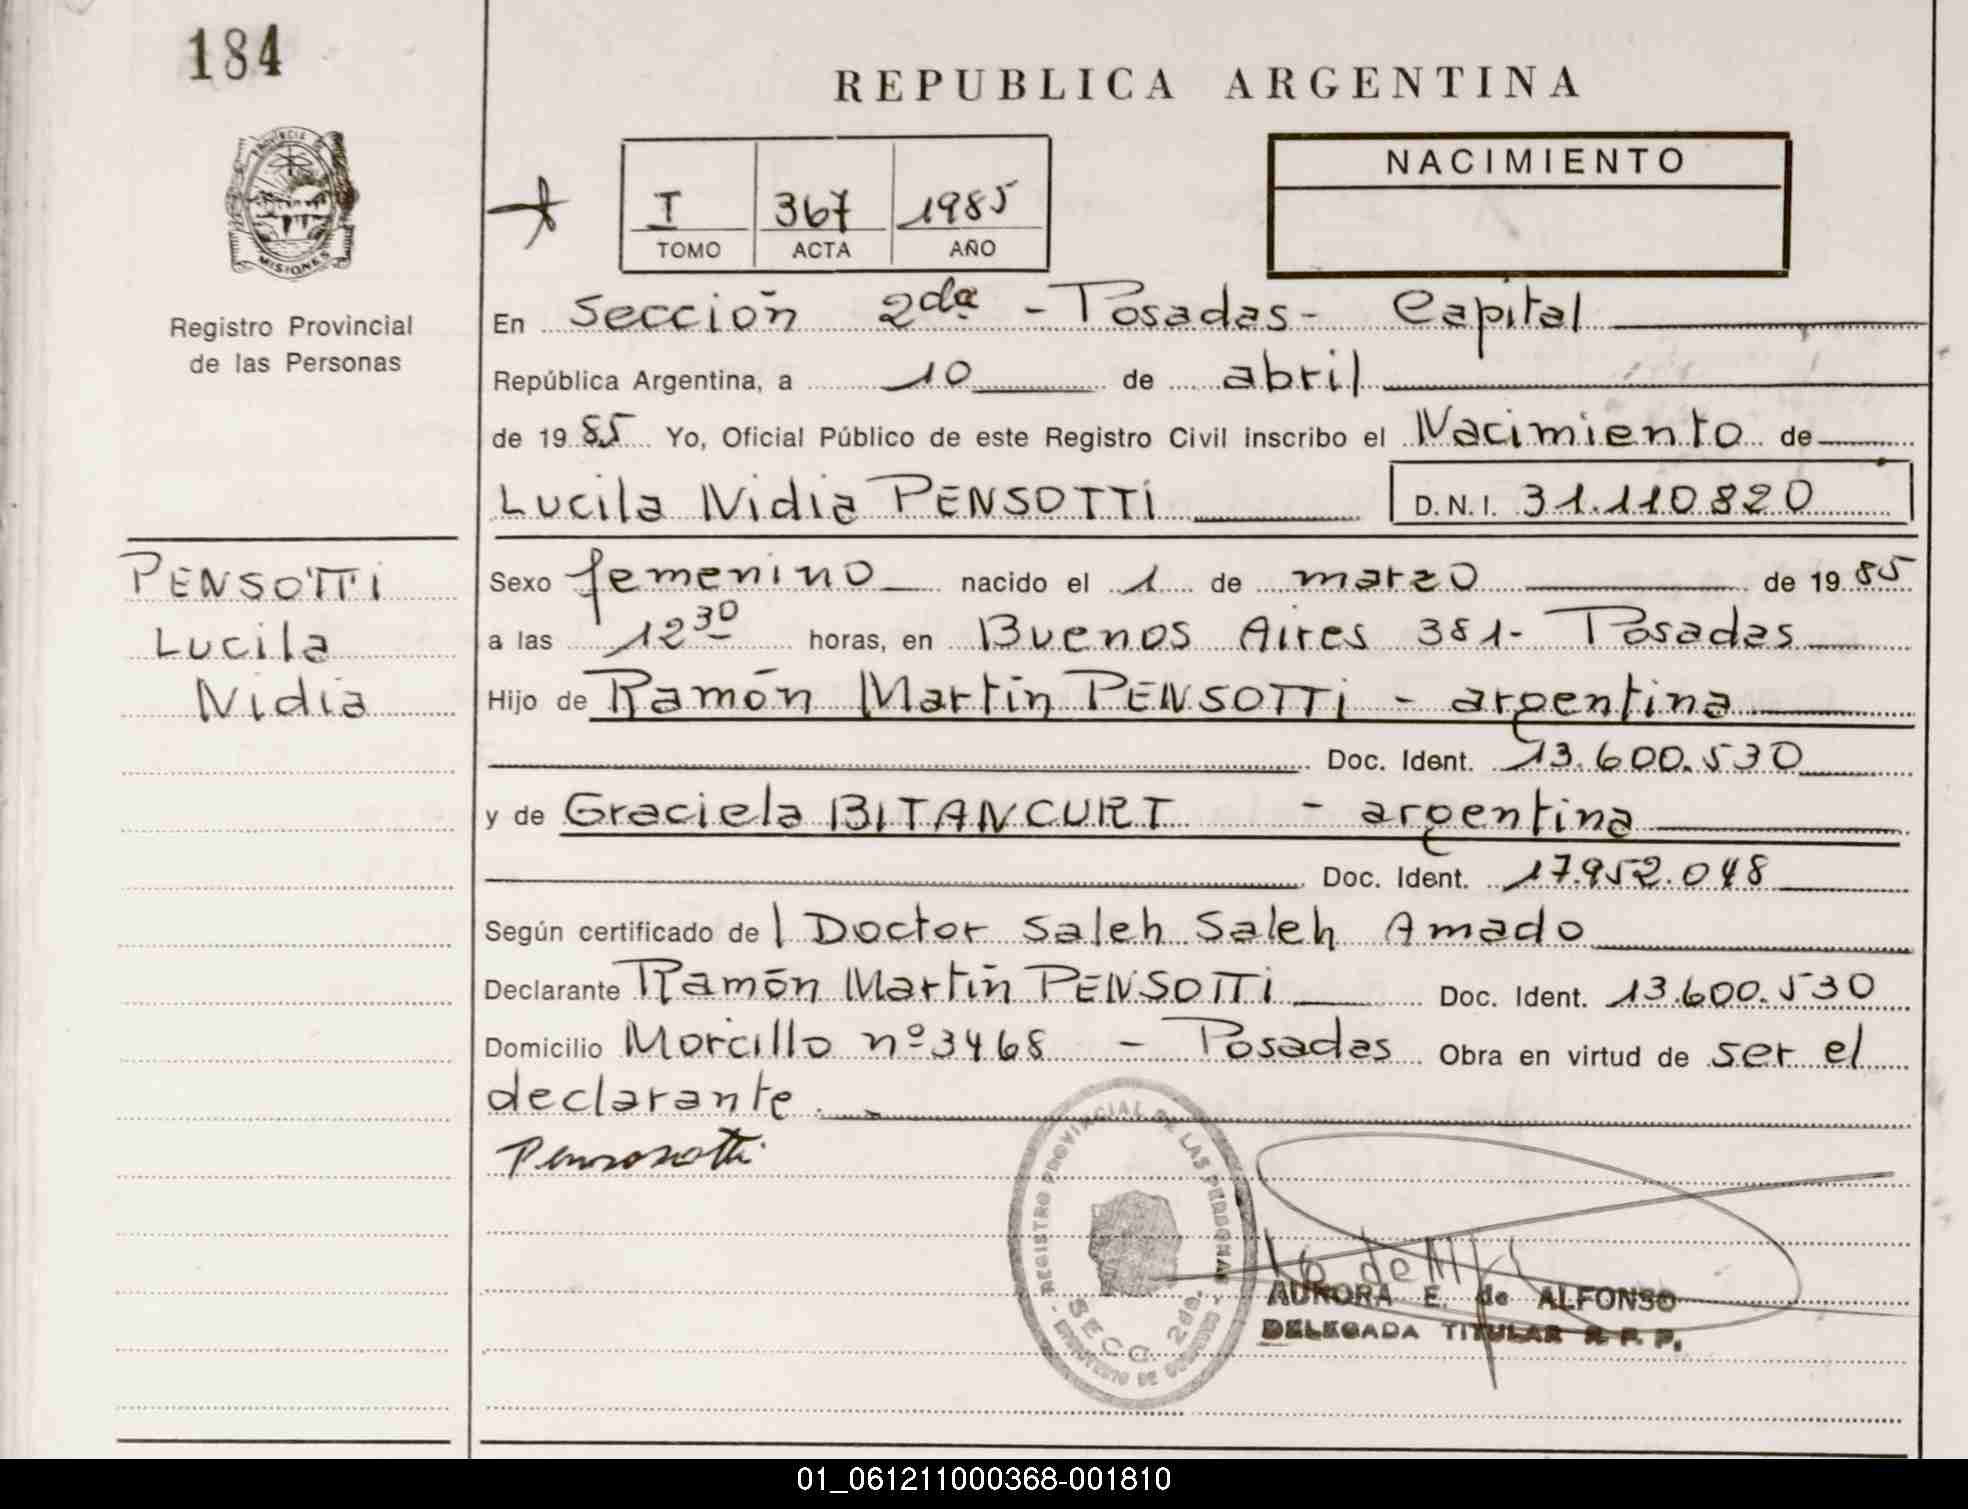 184
REPUBLICA ARGENTINA
PROVINCIA DE
MISIONES
Registro Provincial
de las Personas
I 367 1985
TOMO ACTA AÑO
NACIMIENTO
En Sección 2da - Posadas - Capital
República Argentina, a 10 de abril
de 1985 Yo, Oficial Público de este Registro Civil inscribo el Nacimiento de
Lucila Nidia PENSOTTI D.N.I. 31.110820
PENSOTTI
Lucila
Nidia
Sexo femenino nacido el 1 de marzo de 1985
a las 12 30 horas, en Buenos Aires 381- Posadas
Hijo de Ramón Martín PENSOTTI - argentina
Doc. Ident. 13.600.530
y de Graciela BITANCURT - argentina
Doc. Ident. 17.952.048
Según certificado del Doctor Saleh Saleh Amado
Declarante Ramón Martín PENSOTTI Doc. Ident. 13.600.530
Domicilio Morcillo nº 3468 - Posadas Obra en virtud de ser el
declarante.
REGISTRO PROVINCIAL DE LAS PERSONAS
SECC. 2da.
MINISTERIO DE GOBIERNO
AURORA E. de ALFONSO
DELEGADA TITULAR R. P. P.
01_061211000368-001810